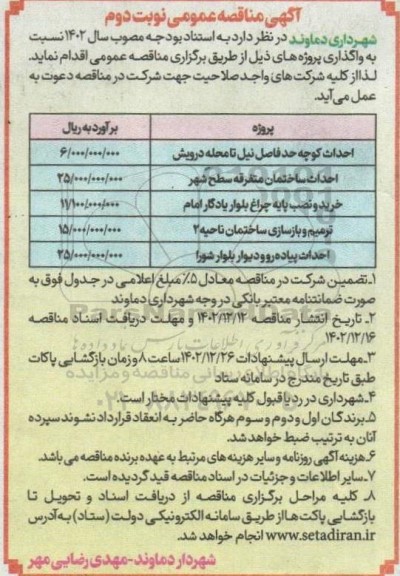 آگهی مناقصه عمومی نوبت دوم
شهرداری دماوند در نظر دارد به استناد بودجه مصوب سال ۱۴۰۲ نسبت
به واگذاری پروژه های ذیل از طریق برگزاری مناقصه عمومی اقدام نماید.
لذا از کلیه شرکت های واجد صلاحیت جهت شرکت در مناقصه دعوت به
عمل می آید.
پروژه برآورد به ریال
احداث کوچه حد فاصل نیل تا محله درویش ۶/۰۰۰/۰۰۰/۰۰۰
احداث ساختمان متفرقه سطح شهر ۲۵/۰۰۰/۰۰۰/۰۰۰
خرید و نصب پایه چراغ بلوار یادگار امام ۱۱/۱۰۰/۰۰۰/۰۰۰
ترمیم و بازسازی ساختمان ناحیه ۲ ۱۵/۰۰۰/۰۰۰/۰۰۰
احداث پیاده رو و دیوار بلوار شورا ۲۵/۰۰۰/۰۰۰/۰۰۰
۱ـ تضمین شرکت در مناقصه معادل ۵٪ مبلغ اعلامی در جدول فوق به
صورت ضمانتنامه معتبر بانکی در وجه شهرداری دماوند
۲ـ تاریخ انتشار مناقصه ۱۴۰۲/۱۲/۱۲ و مهلت دریافت اسناد مناقصه
۱۴۰۲/۱۲/۱۶
۳ـ مهلت ارسال پیشنهادات ۱۴۰۲/۱۲/۲۶ ساعت ۸ و زمان بازگشایی پاکات
طبق تاریخ مندرج در سامانه ستاد
۴ـ شهرداری در رد یا قبول کلیه پیشنهادات مختار است.
۵ـ برندگان اول و دوم و سوم هرگاه حاضر به انعقاد قرارداد نشوند سپرده
آنان به ترتیب ضبط خواهد شد.
۶ـ هزینه آگهی روزنامه و سایر هزینه های مرتبط به عهده برنده مناقصه می باشد.
۷ـ سایر اطلاعات و جزئیات در اسناد مناقصه قید گردیده است.
۸ـ کلیه مراحل برگزاری مناقصه از دریافت اسناد و تحویل تا
بازگشایی پاکت ها از طریق سامانه الکترونیکی دولت (ستاد) به آدرس
www.setadiran.ir انجام خواهد شد.
شهردار دماوند-مهدی رضایی مهر